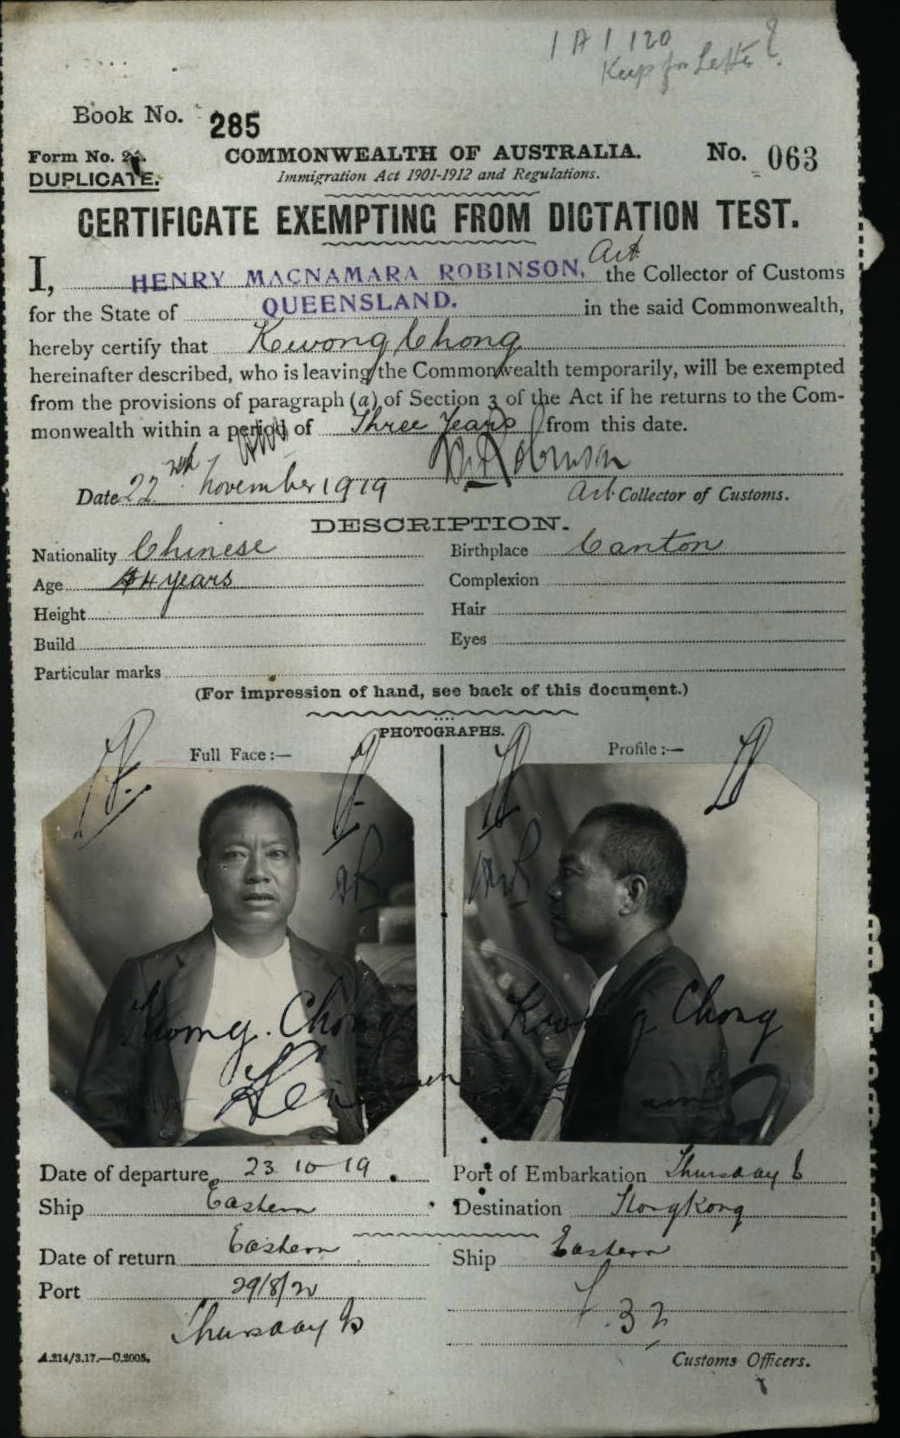 1 A 1 120
Keep for Letter
Book No. 285
Form No. 21.
COMMONWEALTH OF AUSTRALIA.
No. 063
DUPLICATE.
Immigration Act 1901-1912 and Regulations.
CERTIFICATE EXEMPTING FROM DICTATION TEST.
Act
I, HENRY MACNAMARA ROBINSON, the Collector of Customs
for the State of QUEENSLAND. in the said Commonwealth,
hereby certify that Kwong Chong
hereinafter described, who is leaving the Commonwealth temporarily, will be exempted
from the provisions of paragraph (a) of Section 3 of the Act if he returns to the Com-
monwealth within a period of Three Years from this date.
Robinson
Date 22nd November 1919
Act Collector of Customs.
DESCRIPTION.
Nationality Chinese
Birthplace Canton
Age 54 years
Complexion
Height
Hair
Build
Eyes
Particular marks
(For impression of hand, see back of this document.)
PHOTOGRAPHS.
Full Face:—
Profile:—
Kwong Chong
Kwong Chong
Date of departure 23 10 19
Port of Embarkation Thursday I
Ship Eastern
Destination Hong Kong
Date of return Eastern
Ship Eastern
Port 29/8/20
Thursday Is
32
A.214/3.17.—C.2005.
Customs Officers.